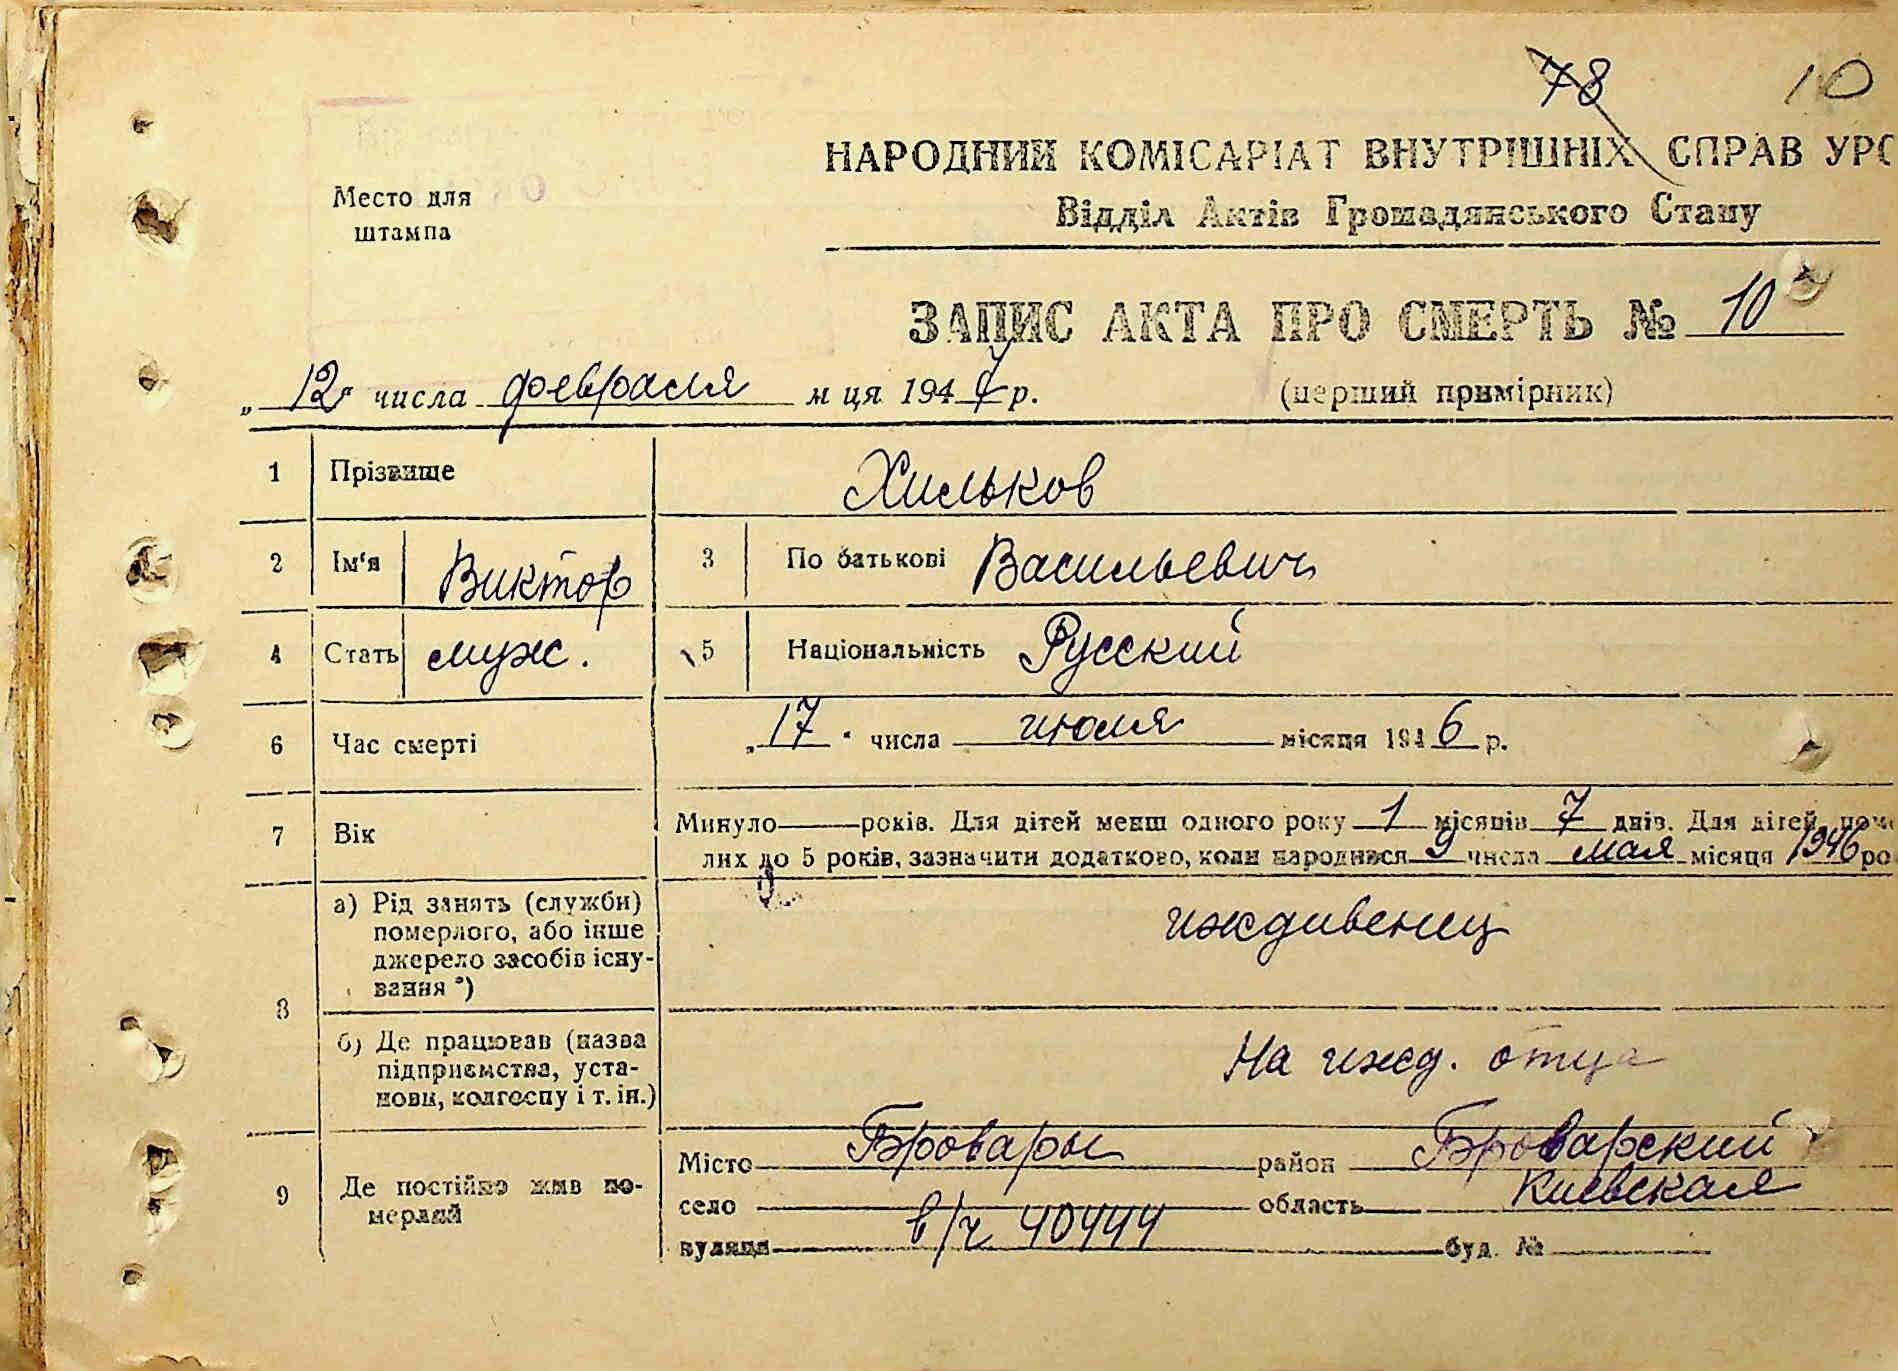 78 10
НАРОДНИЙ КОМІСАРІАТ ВНУТРІШНІХ СПРАВ УРС
Відділ Актів Громадянського Стану
Место для
штампа
ЗАПИС АКТА ПРО СМЕРТЬ № 10
„ 12 " числа февраля м ця 1947 р. (перший примірник)
1 Прізвище Хильков
2 Ім'я Виктор 3 По батькові Васильевич
4 Стать муж. 5 Національність Русский
6 Час смерті „ 17 " числа июля місяця 1946 р.
7 Вік Минуло — років. Для дітей менш одного року 1 місяців 7 днів. Для дітей, поме
лих до 5 років, зазначити додатково, коли народився 9 числа мая місяця 1946 ро
8 а) Рід занять (служби)
померлого, або інше
джерело засобів існу-
вання *)
иждивенец
б) Де працював (назва
підприємства, уста-
нови, колгоспу і т. ін.)
На ижд. отца
9 Де постійно жив по-
мерлий
Місто Бровары район Броварский
село область Киевская
вулиця в/ч 40444 буд. №